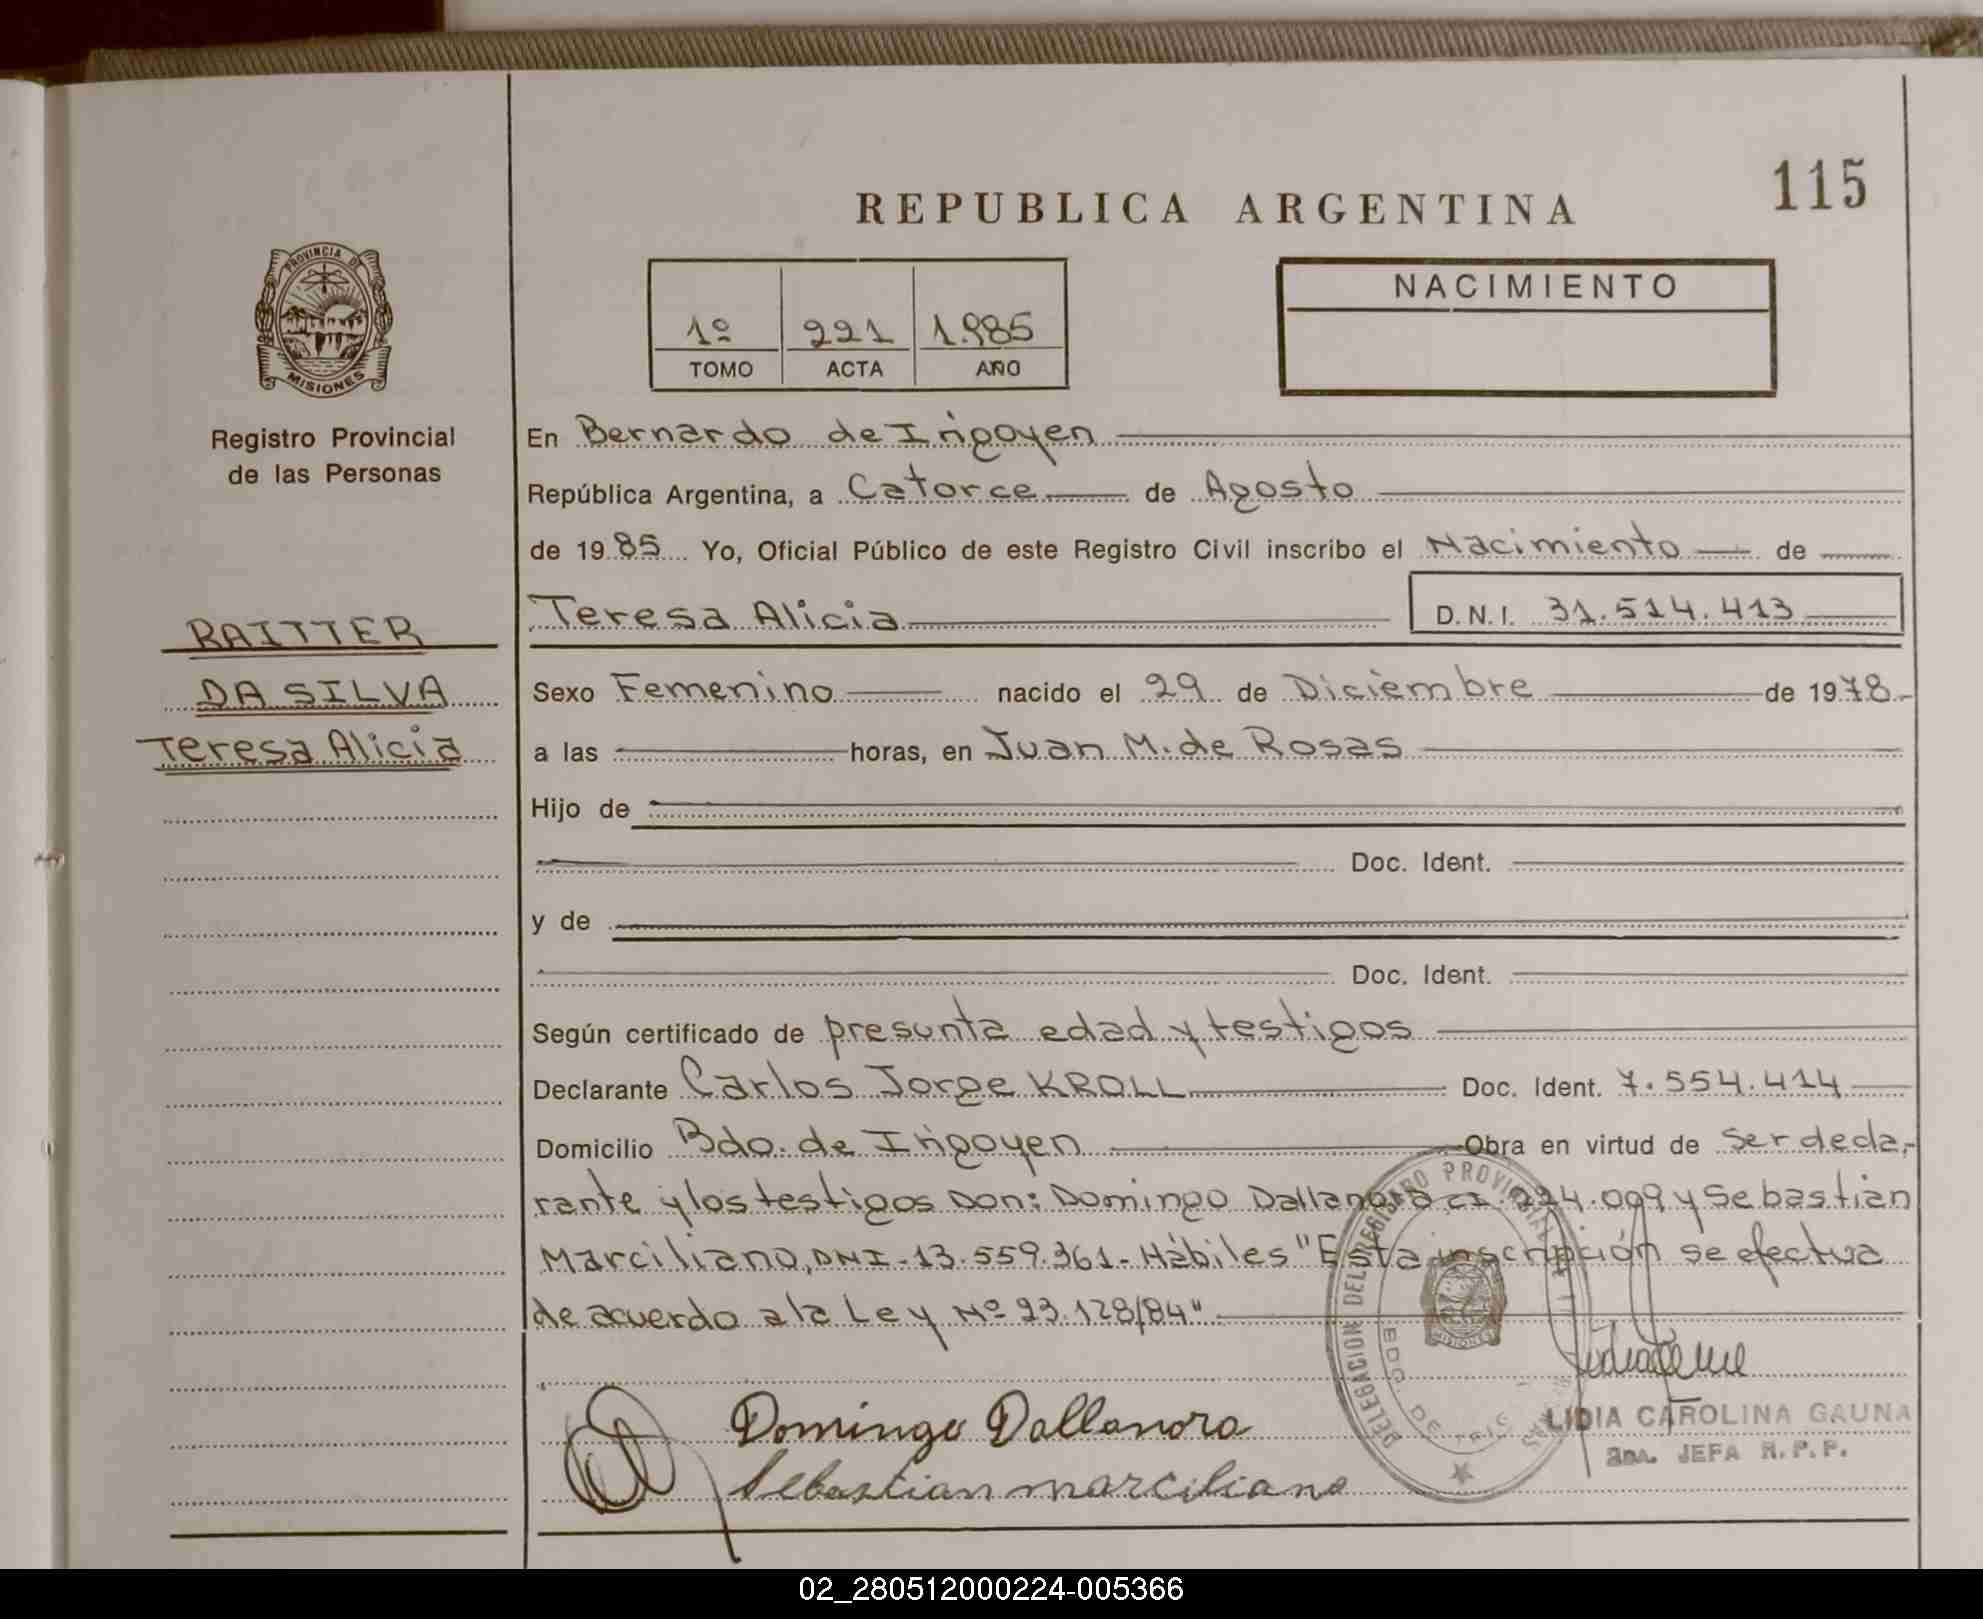 115
REPUBLICA ARGENTINA
PROVINCIA DE
MISIONES
Registro Provincial
de las Personas
RAITTER
DA SILVA
Teresa Alicia
1º 221 1.985
TOMO ACTA AÑO
NACIMIENTO
En Bernardo de Irigoyen
República Argentina, a Catorce de Agosto
de 19 85 Yo, Oficial Público de este Registro Civil inscribo el Nacimiento de
Teresa Alicia D.N.I. 31.514.413
Sexo Femenino nacido el 29 de Diciembre de 1978
a las horas, en Juan M. de Rosas
Hijo de
Doc. Ident.
y de
Doc. Ident.
Según certificado de presunta edad y testigos
Declarante Carlos Jorge KROLL Doc. Ident. 7.554.414
Domicilio Bdo. de Irigoyen Obra en virtud de ser decla-
rante y los testigos Don: Domingo Dallanora CI. 224.009 y Sebastián
Marciliano, DNI-13.559.361- Hábiles "Esta inscripción se efectua
de acuerdo a la Ley Nº 23.128/84"
Domingo Dallanora
Sebastian marciliano
DELEGACION DEL REGISTRO PROVINCIAL
BDO. DE IRIG
MISIONES
LIDIA CAROLINA GAUNA
2DA. JEFA R.P.P.
02_280512000224-005366